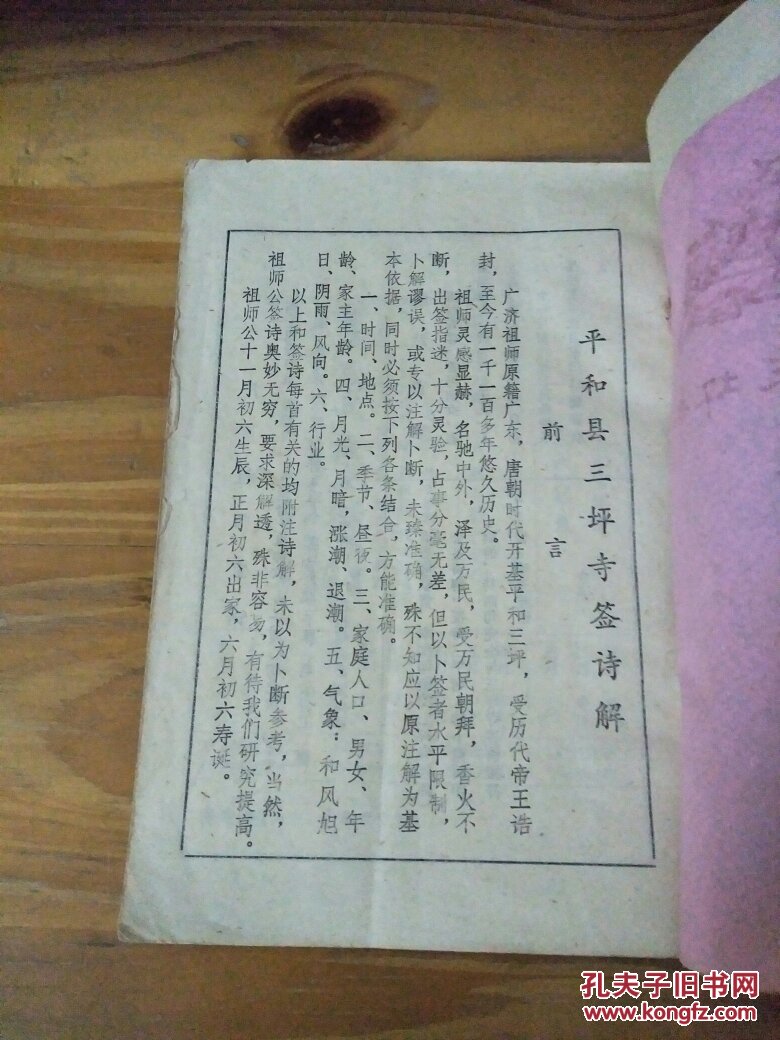 平和县三坪寺签诗解
前言
广济祖师原籍广东，唐朝时代开基平和三坪，受历代帝王诰
封，至今有一千一百多年悠久历史。
祖师灵感显赫，名驰中外，泽及万民，受万民朝拜，香火不
断，出签指迷，十分灵验，占事分毫无差，但以卜签者水平限制，
卜解谬误，或专以注解卜断，未臻准确，殊不知应以原注解为基
本依据，同时必须按下列各条结合，方能准确。
一、时间、地点。二、季节、昼夜。三、家庭人口、男女、年
龄、家主年龄。四、月光、月暗，涨潮、退潮。五、气象：和风旭
日、阴雨、风向。六、行业。
以上和签诗每首有关的均附注诗解，未以为卜断参考，当然，
祖师公签诗奥妙无穷，要求深解透，殊非容易，有待我们研究提高。
祖师公十一月初六生辰，正月初六出家，六月初六寿诞。
孔夫子旧书网
www.kongfz.com